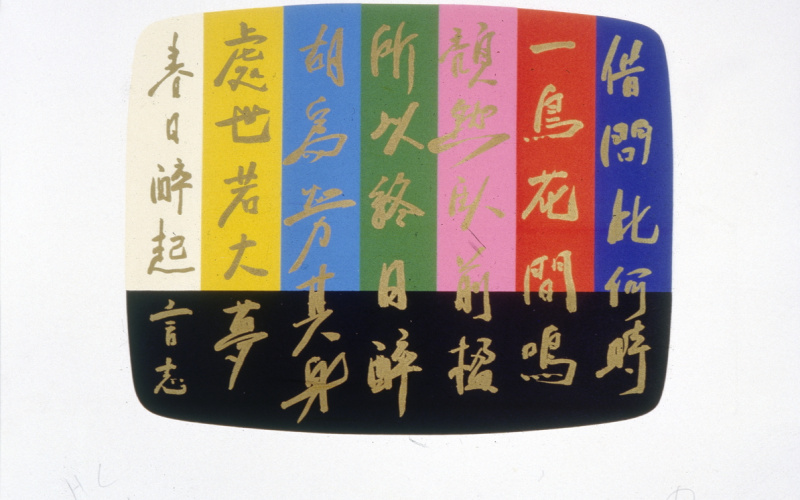 春日醉起言志
處世若大夢
胡為勞其身
所以終日醉
頹然臥前楹
一鳥花間鳴
借問此何時
HC